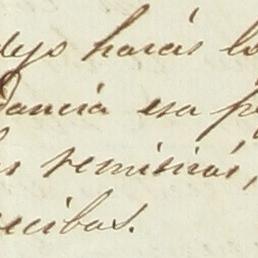 dejo harás lo
dancia esa p
remisirás,
recibas.